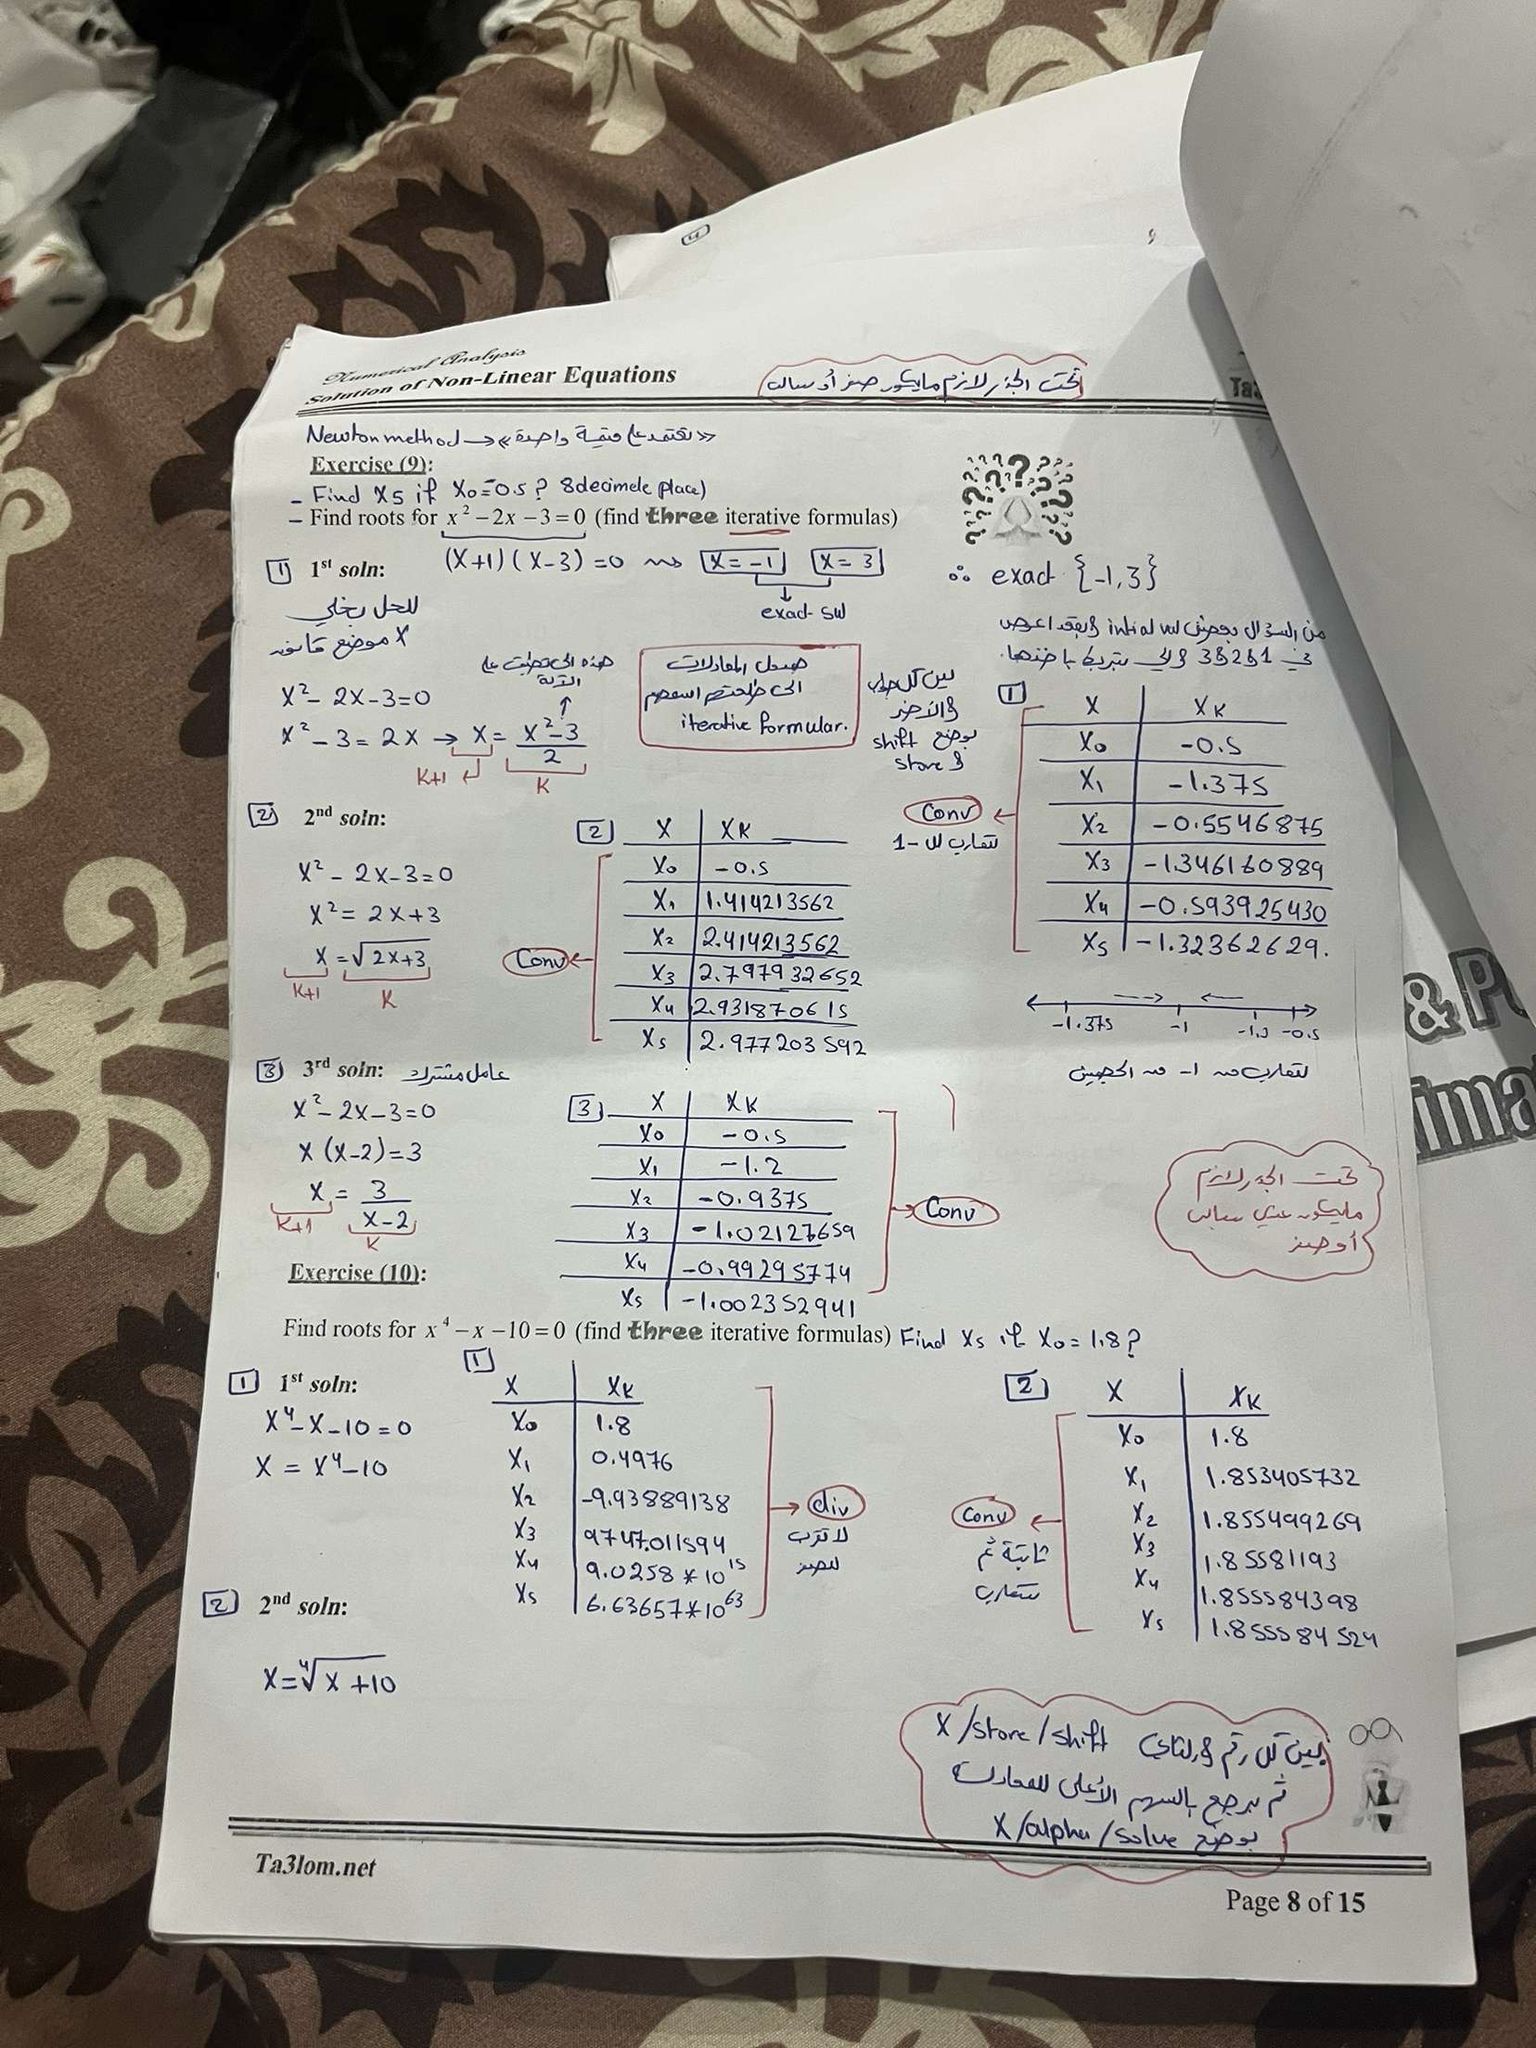 4
Numerical Analysis
Solution of Non-Linear Equations
تحت الجذر لازم مايكون صفر أو سالب
Ta3
Newton method → «تعتمد على قيمة واحدة»
Exercise (9):
- Find X5 if X0=-0.5? 8 decimele place)
- Find roots for x² − 2x − 3 = 0 (find three iterative formulas)
1 1st soln: (X+1)(X-3)=0 ⇝ X=-1 X=3 ∴ exact {-1,3}
exact sol
للحل بخلي
X موضع قانون
من السؤال بعطيني intial val و بعدها اعوض
في 1 و 2 و 3
هذه الي
X² - 2X - 3 = 0
X² - 3 = 2X → X = X² - 3 / 2
K+1 K
المعادلات
الى
iterative formular.
بين كل جواب
والآخر
بوضع shift
و store
1
X XK
X0 -0.5
X1 -1.375
X2 -0.5546875
X3 -1.346160889
X4 -0.593925430
X5 -1.32362629.
Conv
تتقارب لل -1
-1.375 -1 -0.5
تتقارب من -1 من الجهتين
2 2nd soln:
X² - 2X - 3 = 0
X² = 2X + 3
X = √2X+3
K+1 K
2
X XK
X0 -0.5
X1 1.414213562
X2 2.414213562
X3 2.797932652
X4 2.931870615
X5 2.977203592
Conv
3 3rd soln: عامل مشترك
X² - 2X - 3 = 0
X (X-2) = 3
X = 3 / X-2
K+1 K
3
X XK
X0 -0.5
X1 -1.2
X2 -0.9375
X3 -1.02127659
X4 -0.99295774
X5 -1.002352941
Conv
تحت الجذر لازم
مايكون عندي سالب
أو صفر
& P
ima
Exercise (10):
Find roots for x⁴ − x − 10 = 0 (find three iterative formulas) Find X5 if X0 = 1.8?
1 1st soln:
X⁴ - X - 10 = 0
X = X⁴ - 10
1
X XK
X0 1.8
X1 0.4976
X2 -9.93889138
X3 9747.011594
X4 9.0258 * 10¹⁵
X5 6.63657 * 10⁶³
div
2
X XK
X0 1.8
X1 1.853405732
X2 1.855499269
X3 1.85581193
X4 1.855584398
X5 1.855584524
Conv
ثابتة ثم
تتقارب
2 2nd soln:
X = ⁴√X + 10
بين كل رقم والتاني X /store /shift
ثم برجع بالسهم الأعلى للمعادلة
بوضع X /alpha /solve
Ta3lom.net
Page 8 of 15